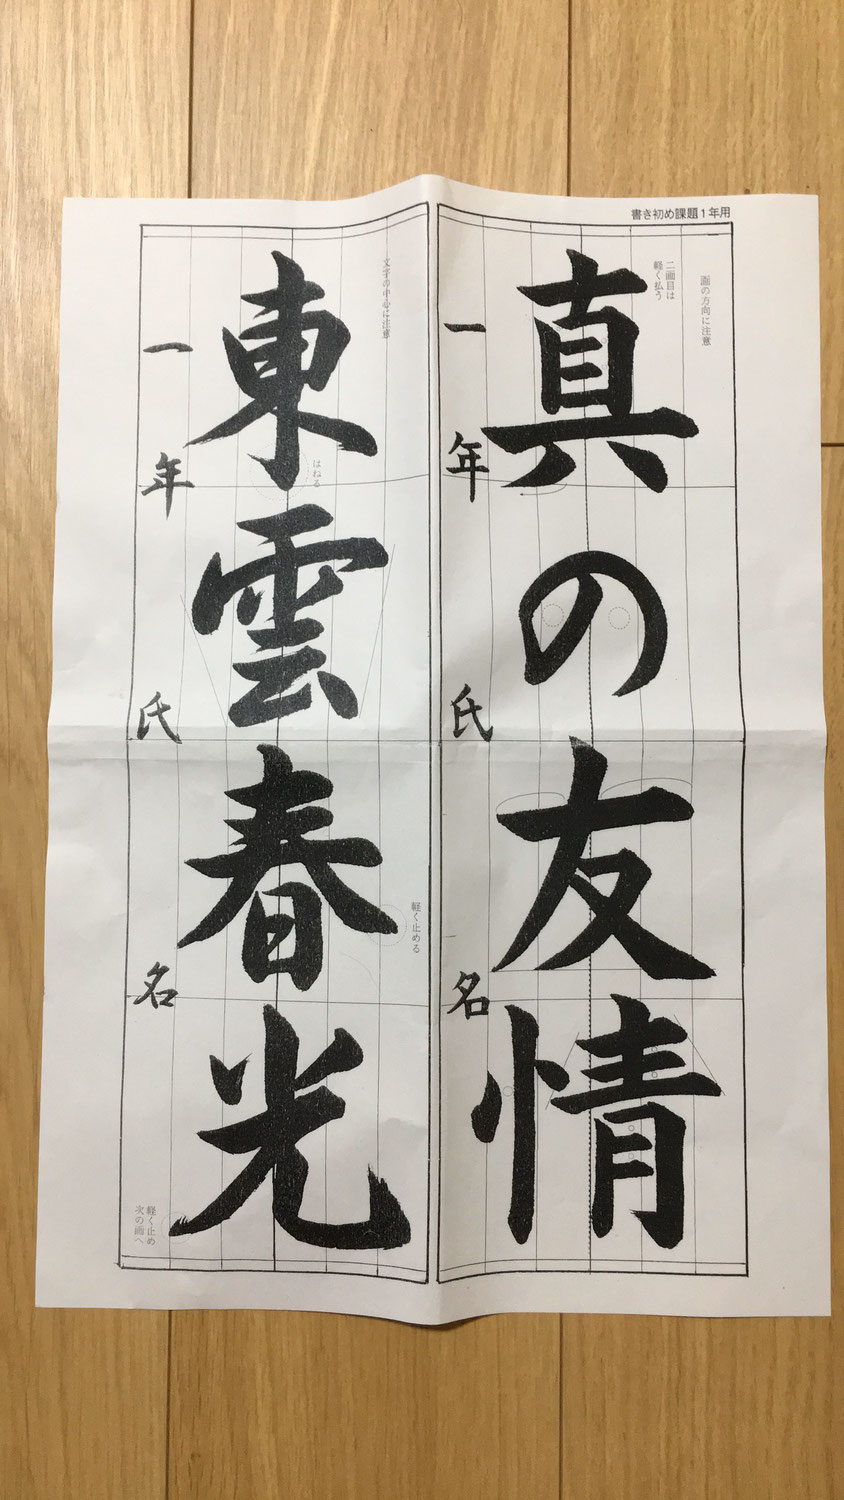 書き初め課題1年用
画の方向に注意
二画目は
軽く払う
真の友情
一年氏名
文字の中心に注意
はねる
軽く止める
東雲春光
軽く止め
次の画へ
一年氏名